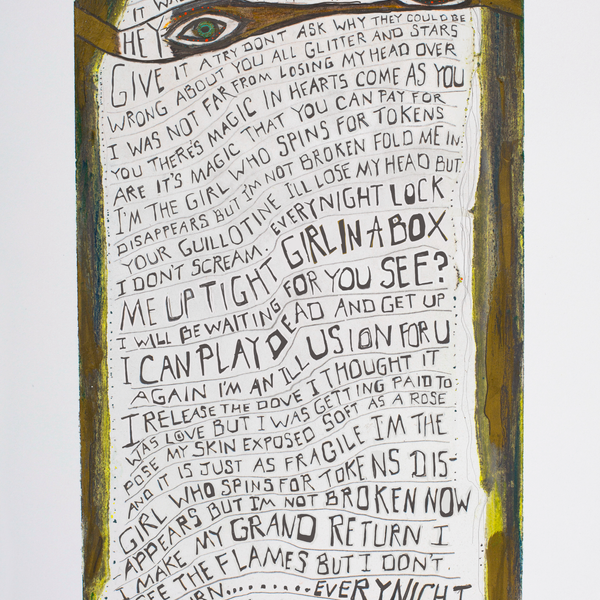 IT WAS
HEY
GIVE IT A TRY DON'T ASK WHY THEY COULD BE
WRONG ABOUT YOU ALL GLITTER AND STARS
I WAS NOT FAR FROM LOSING MY HEAD OVER
YOU THERE'S MAGIC IN HEARTS COME AS YOU
ARE IT'S MAGIC THAT YOU CAN PAY FOR
I'M THE GIRL WHO SPINS FOR TOKENS
DISAPPEARS BUT I'M NOT BROKEN FOLD ME IN
YOUR GUILLOTINE I'LL LOSE MY HEAD BUT
I DON'T SCREAM. EVERYNIGHT LOCK
ME UP TIGHT GIRL IN A BOX
I WILL BE WAITING FOR YOU SEE?
I CAN PLAY DEAD AND GET UP
AGAIN I'M AN ILLUSION FOR U
I RELEASE THE DOVE I THOUGHT IT
WAS LOVE BUT I WAS GETTING PAID TO
POSE MY SKIN EXPOSED SOFT AS A ROSE
AND IT IS JUST AS FRAGILE I'M THE
GIRL WHO SPINS FOR TOKENS DIS-
APPEARS BUT I'M NOT BROKEN NOW
I MAKE MY GRAND RETURN I
SEE THE FLAMES BUT I DON'T.
EVERYNIGHT